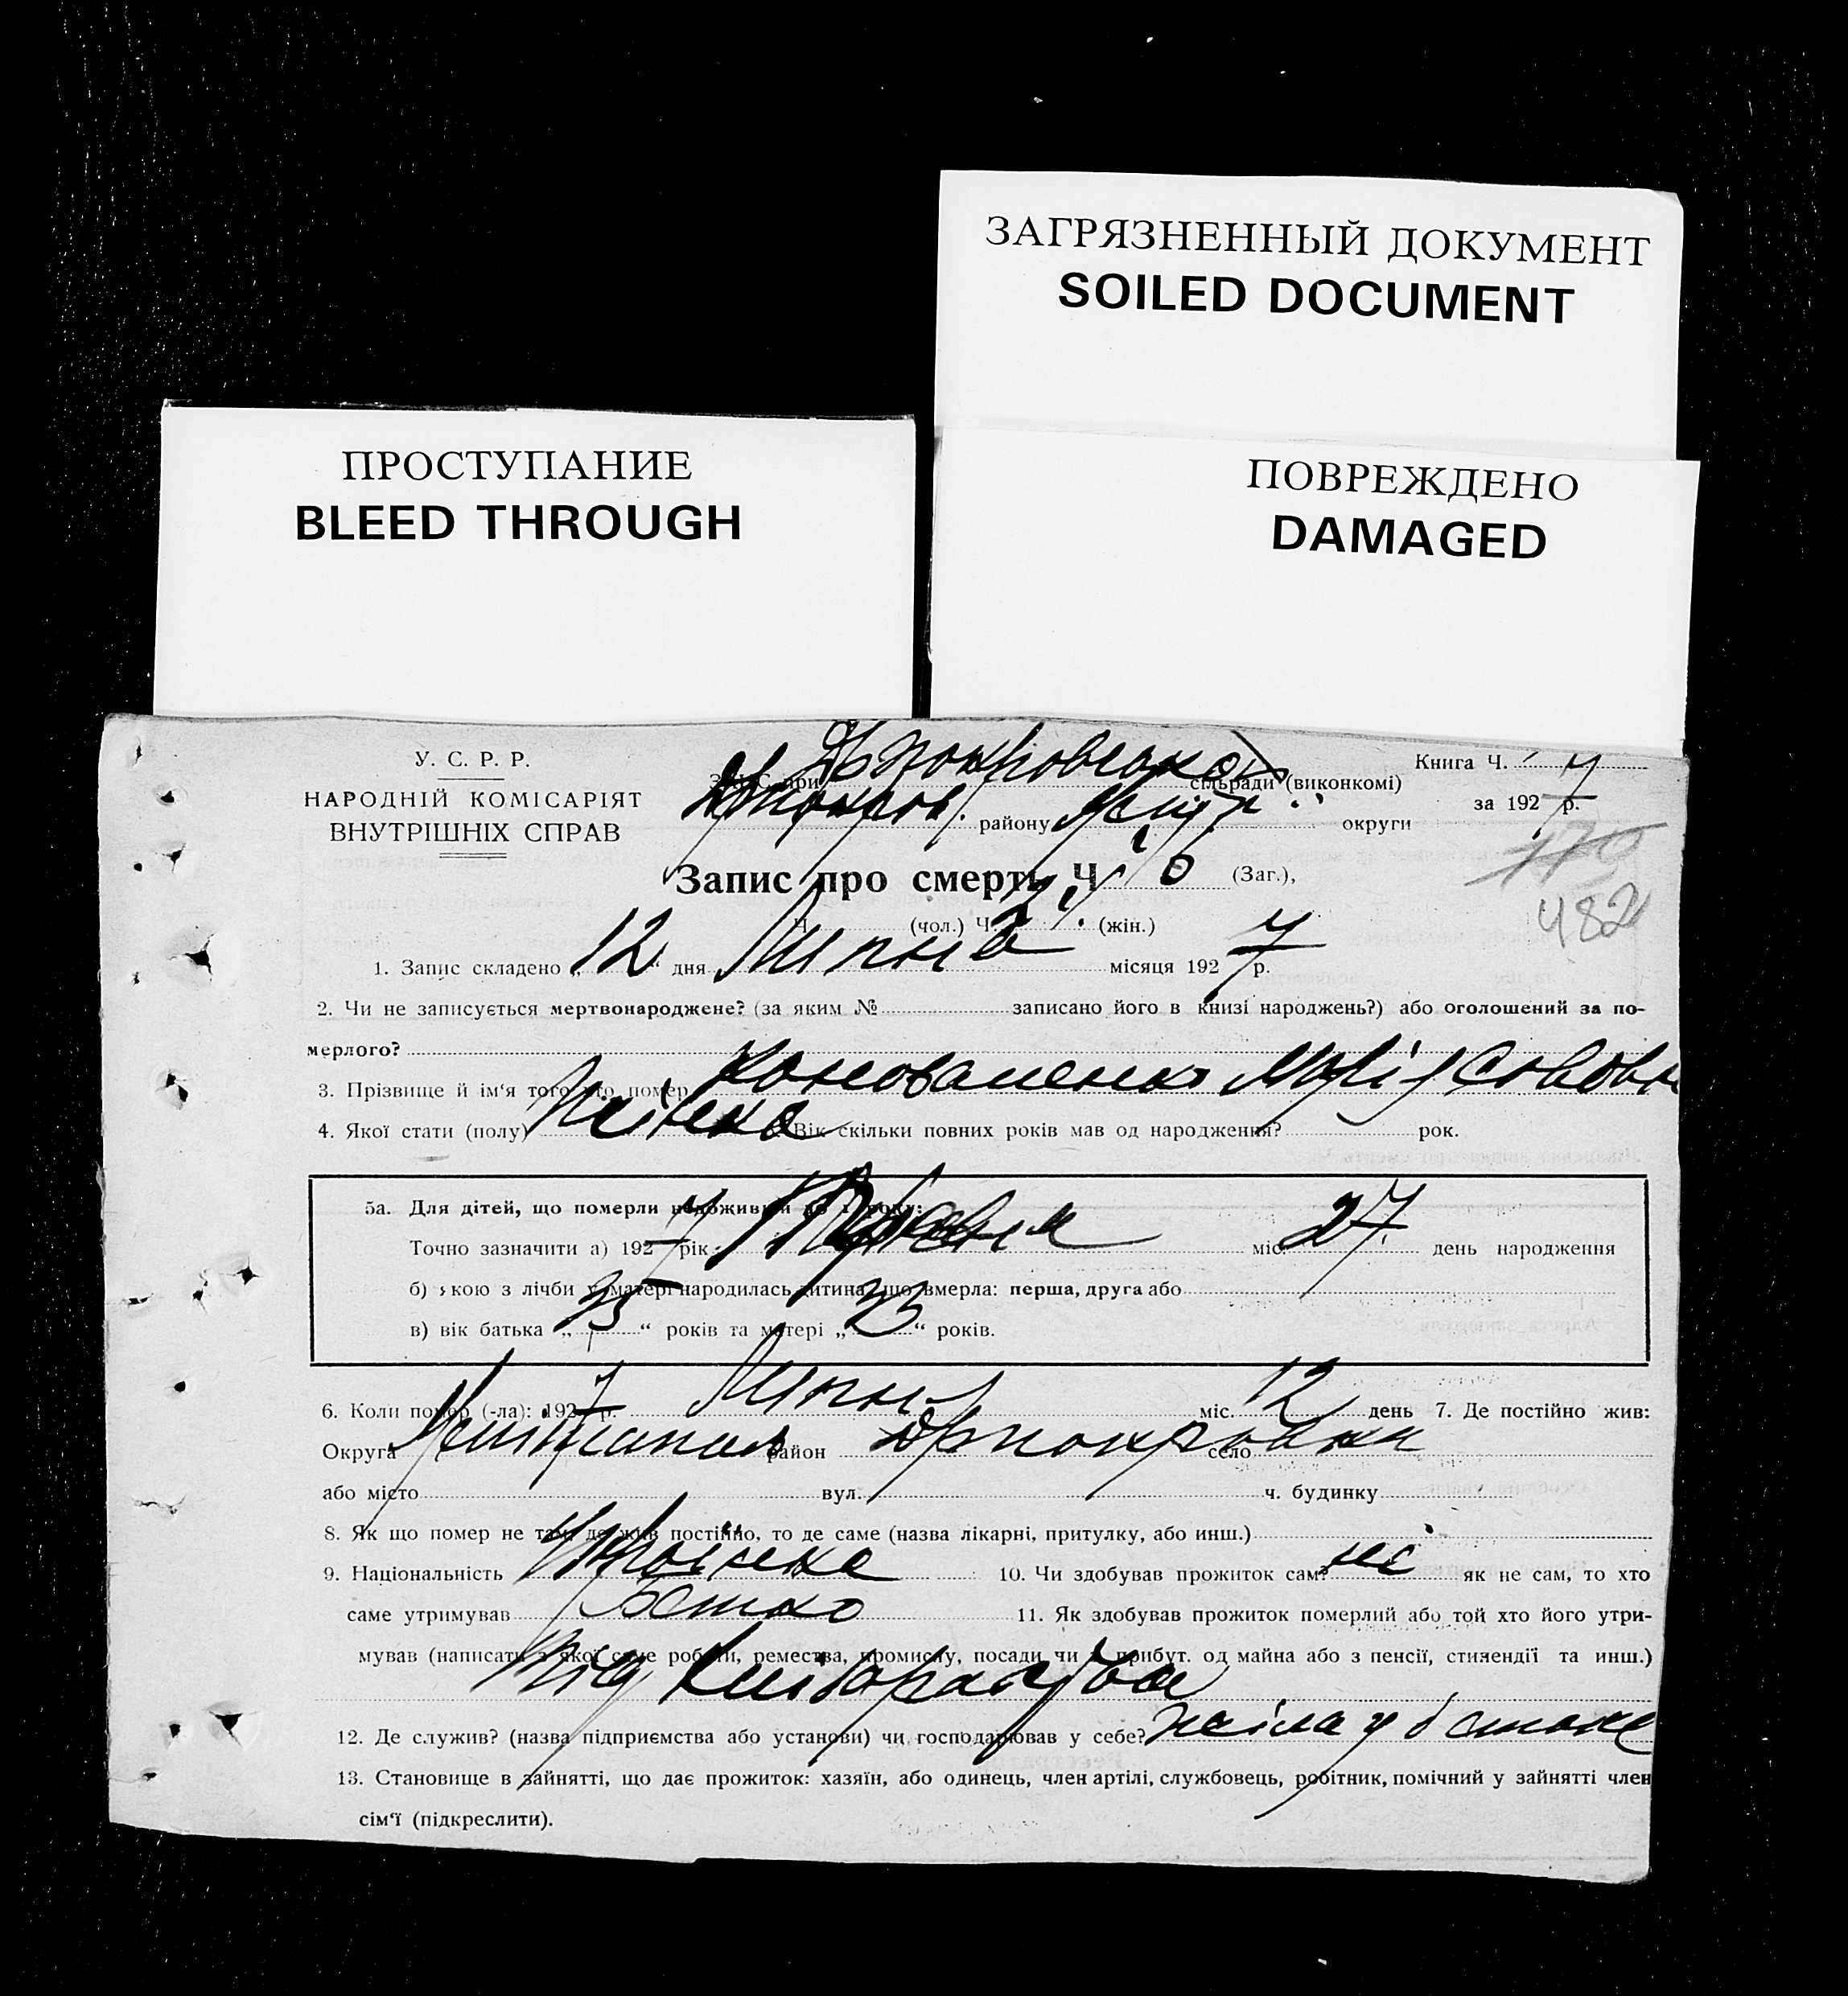 ЗАГРЯЗНЕННЫЙ ДОКУМЕНТ
SOILED DOCUMENT
ПРОСТУПАНИЕ
BLEED THROUGH
ПОВРЕЖДЕНО
DAMAGED
У. С. Р. Р.
НАРОДНІЙ КОМІСАРІЯТ
ВНУТРІШНІХ СПРАВ
ЗАГС при сільради (виконкомі)
району округи
Книга Ч.
за 1927 р.
Запис про смерть Ч. (Заг.),
482
Ч. (чол.) Ч. (жін.)
1. Запис складено „12“ дня Липня місяця 1927 р.
2. Чи не записується мертвонароджене? (за яким № записано його в книзі народжень?) або оголошений за по-
мерлого?
3. Прізвище й ім‘я того, хто помер Коноваленко Марія
4. Якої стати (полу) Жінка Вік скільки повних років мав од народження? рок.
5а. Для дітей, що померли недоживши до 1 року:
Точно зазначити а) 1927 рік міс. 27 день народження
б) якою з лічби у матері народилась дитина, що вмерла: перша, друга або
в) вік батька „25“ років та матері „23“ років.
6. Коли помер (-ла): 1927 р. Липня міс. 12 день 7. Де постійно жив:
Округа район село
або місто вул. ч. будинку
8. Як що помер не там, де жив постійно, то де саме (назва лікарні, притулку, або инш.)
9. Національність Українка 10. Чи здобував прожиток сам? ні як не сам, то хто
саме утримував Батько 11. Як здобував прожиток померлий або той хто його утри-
мував (написати з якої саме роботи, ремества, промислу, посади чи з прибут. од майна або з пенсії, стипендії та инш.)
Від
12. Де служив? (назва підприємства або установи) чи господарював у себе? жила у батька
13. Становище в зайнятті, що дає прожиток: хазяїн, або одинець, член артілі, службовець, робітник, помічний у зайнятті член
сім‘ї (підкреслити).